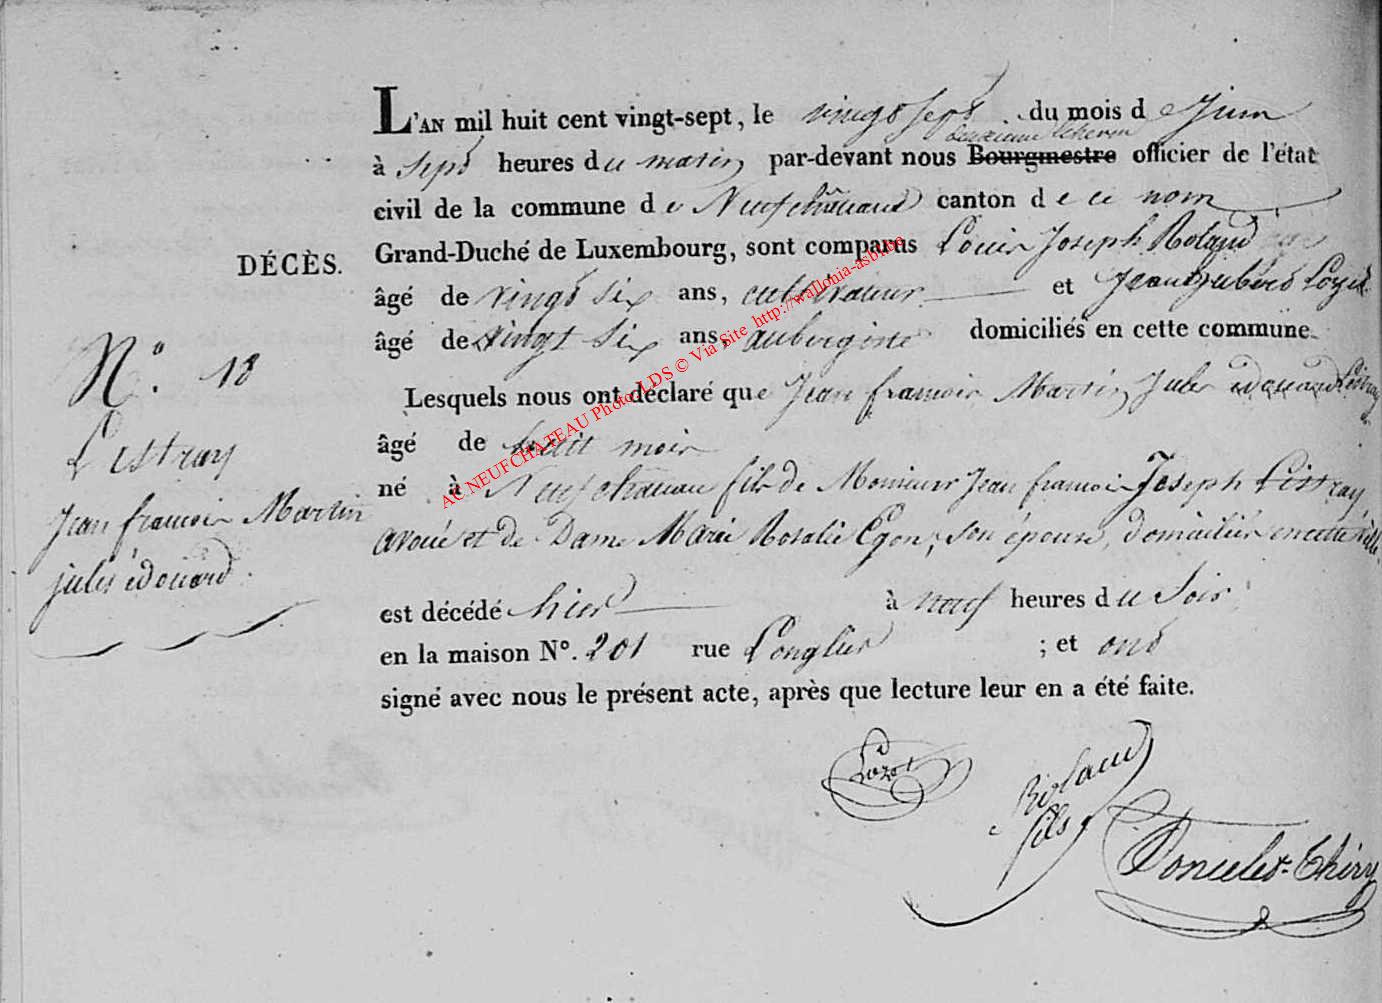 L'AN mil huit cent vingt-sept, le vingt sept du mois de Juin
deuxieme Echevin
à sept heures du matin par-devant nous Bourgmestre officier de l'état
civil de la commune de Neufchâteau canton de ce nom
Grand-Duché de Luxembourg, sont comparus Louis Joseph Roland
DÉCÈS.
âgé de vingt six ans, cultivateur et Jean hubert Lozet
âgé de vingt six ans, aubergiste domiciliés en cette commune
N°. 18
Lesquels nous ont déclaré que Jean francois Martin Jules edouard Lestray
Lestray
âgé de huit mois
né à Neufchateau fils de Monsieur Jean francois Joseph Lestray
Jean francois Martin
avoué et de Dame Marie Rosalie Egon, son épouse, domiciliés en cette ville
jules édouard.
est décédé hier à neuf heures du Soir
en la maison N°. 201 rue Longlier ; et ont
signé avec nous le présent acte, après que lecture leur en a été faite.
Lozet
Roland
fils
Poncelet-Thiry
AC NEUFCHATEAU Photo LDS © Via Site http://wallonia-asbl.be